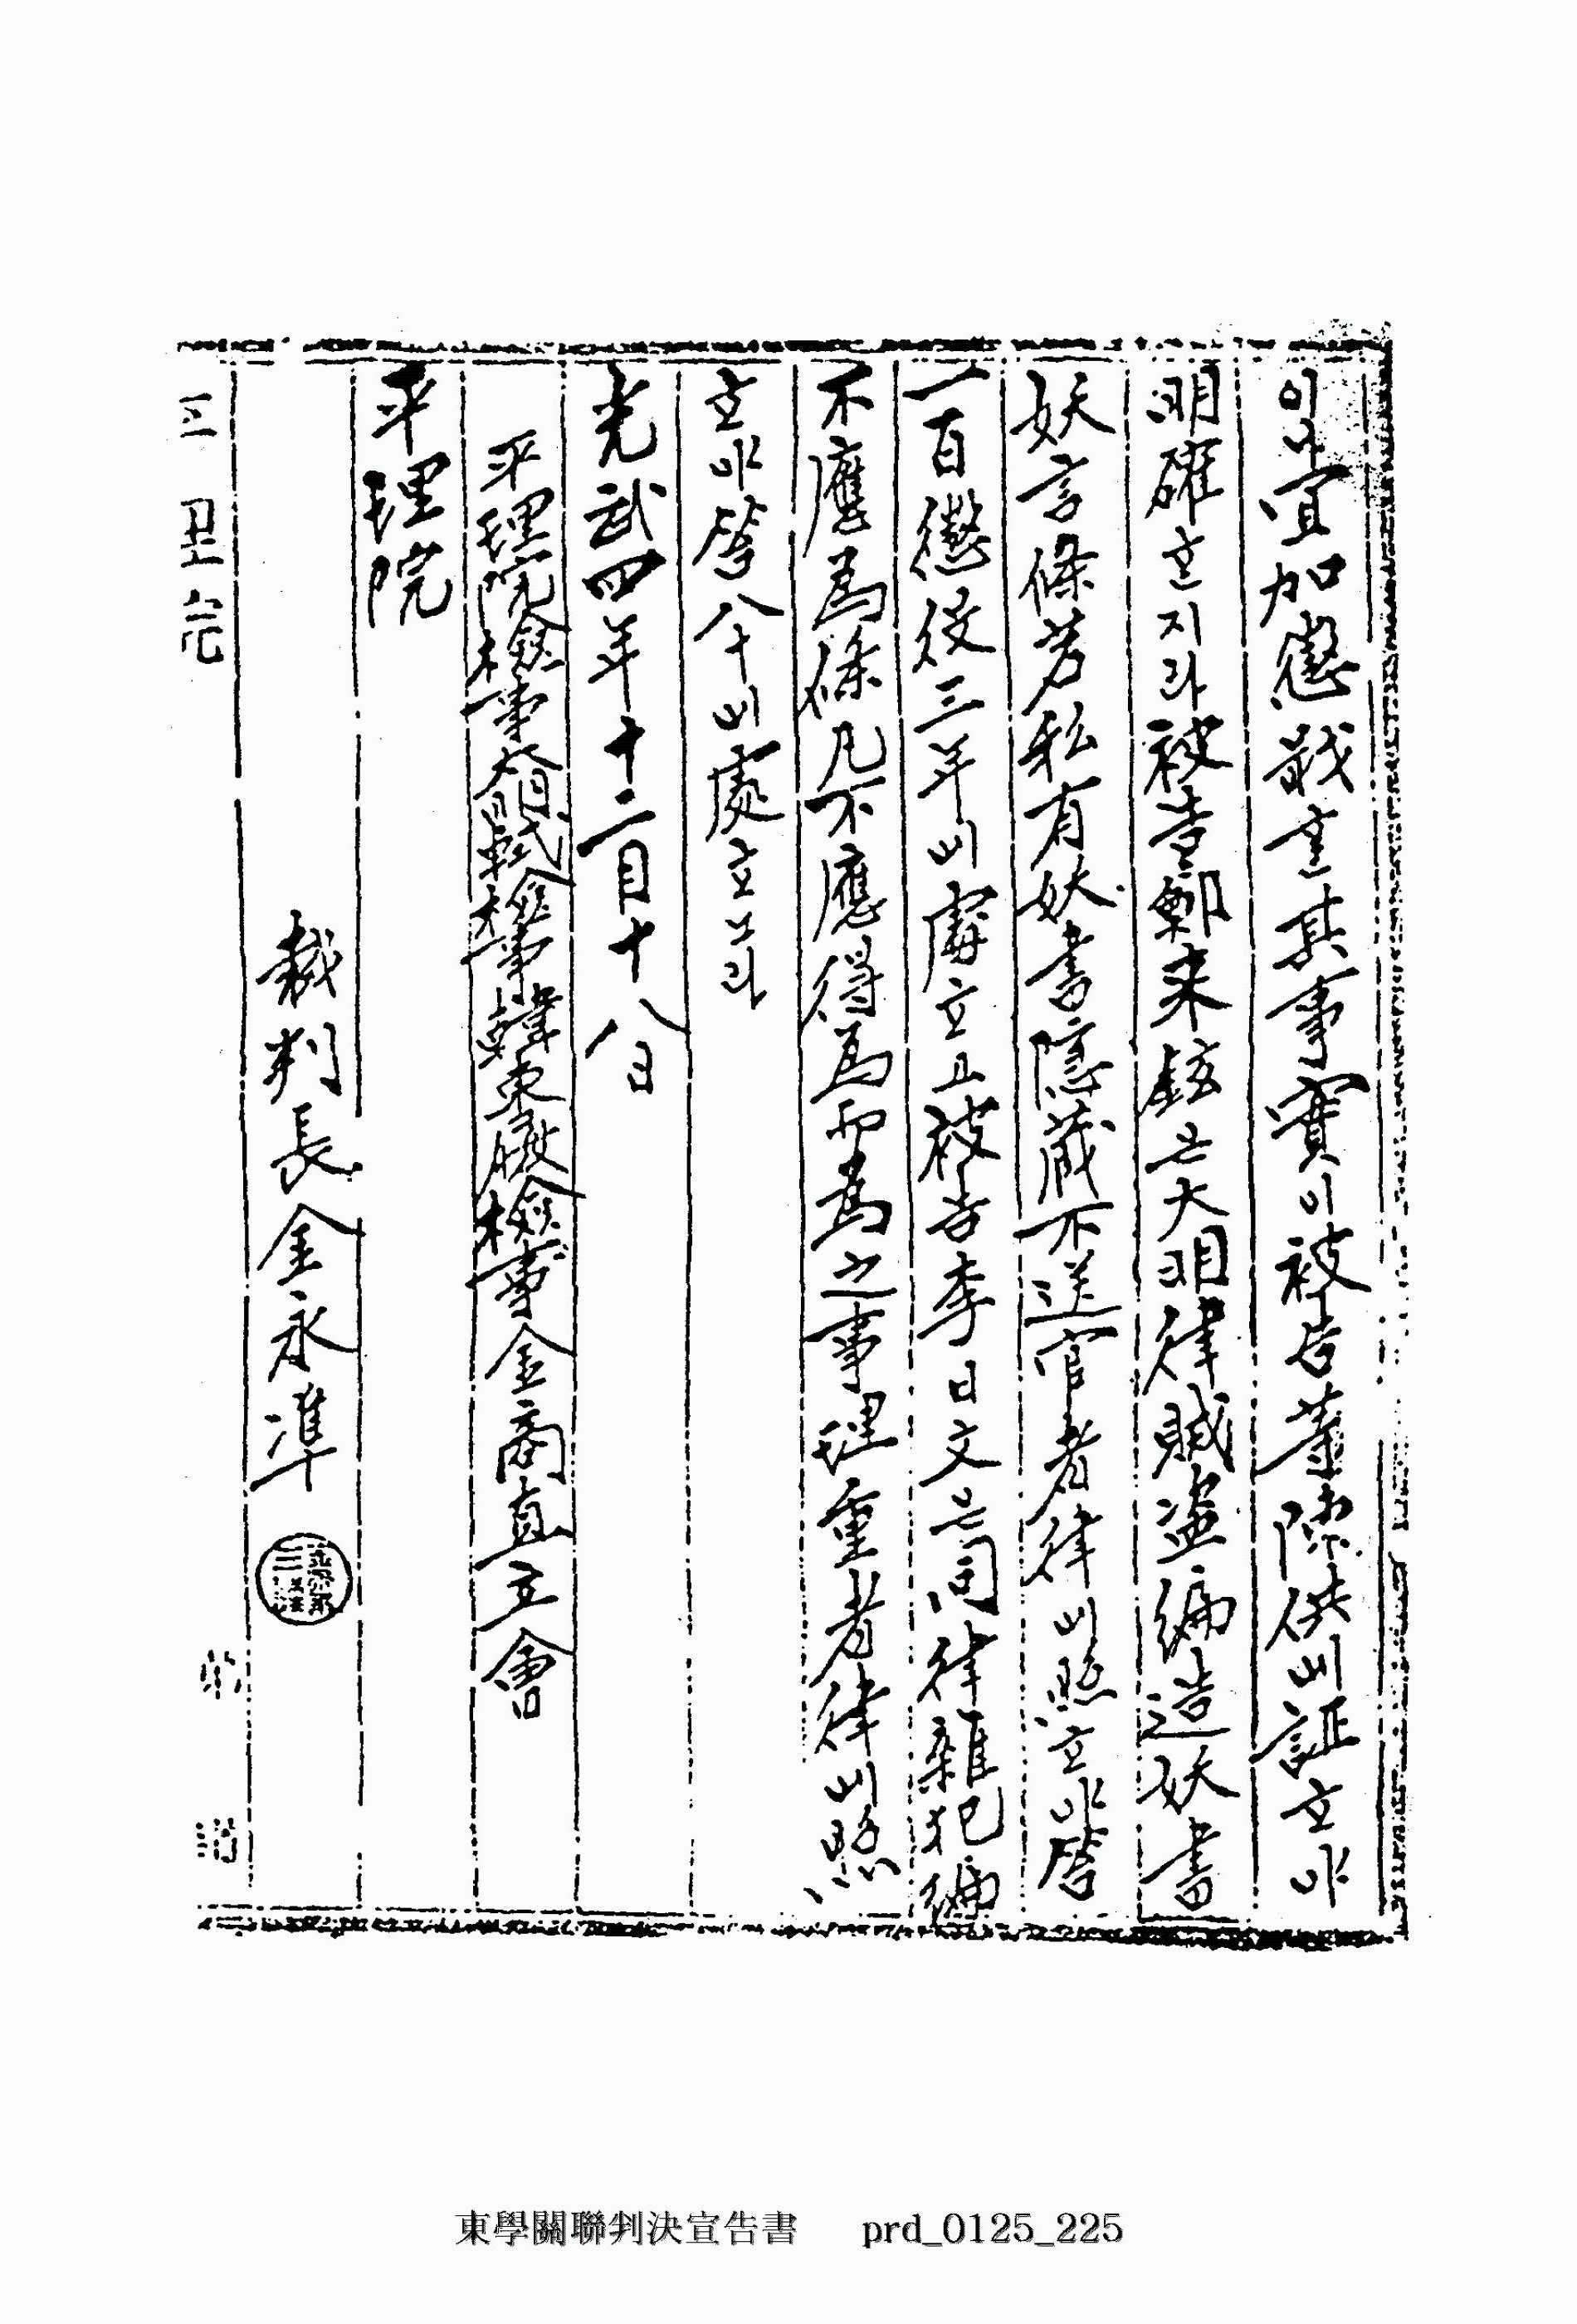 이니宜加懲戢ᄒᆞᆫ其事實이被告等陳供에証ᄒᆞ야
明確ᄒᆞᆫ지라被告鄭来鉉은大明律賊盜編造妖書
妖言條若私有妖書隱藏不送官者律에照ᄒᆞ야笞
一百懲役三年에處ᄒᆞ고被告李日文은同律雜犯編
不應爲條凡不應得爲而爲之事理重者律에照
ᄒᆞ야笞八十에處ᄒᆞ노라
光武四年十二月十八日
平理院檢事太明軾檢事韓東履檢事金商直立會
平理院
裁判長金永準
東學關聯判決宣告書 prd_0125_225